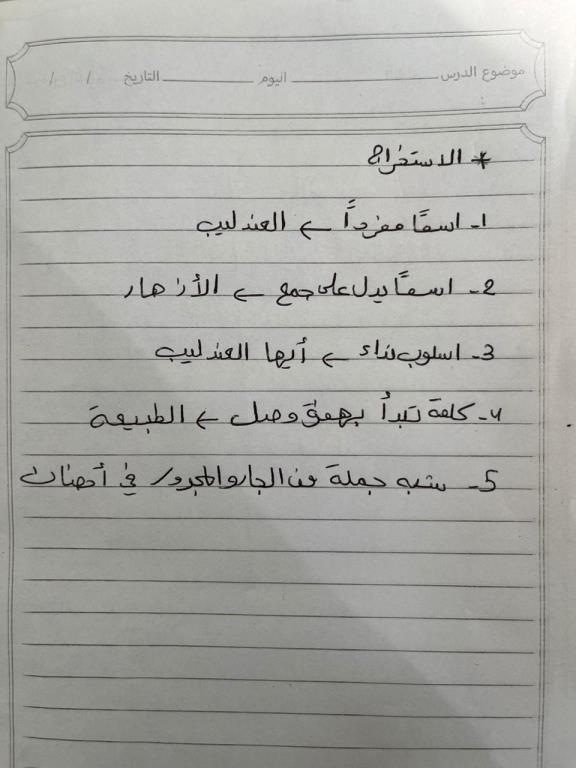 موضوع الدرس ________ اليوم ________ التاريخ / /
* الاستخراج
1- اسمًا مفرداً ← العندليب
2- اسمًا يدل على جمع ← الأزهار
3- اسلوب نداء ← أيها العندليب
4- كلمة تبدأ بهمزة وصل ← الطبيعة
5- شبه جملة من الجار والمجرور في أحضان